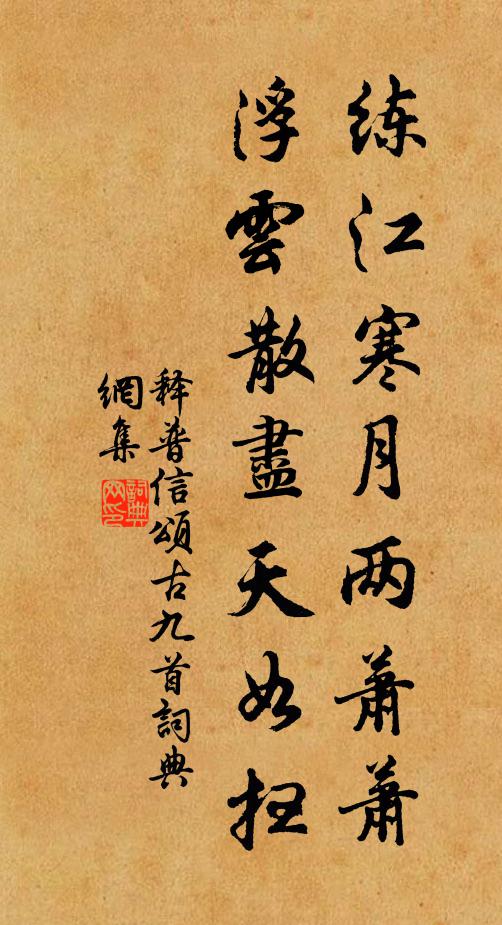 练江寒月两蕭蕭
浮雲散盡天如扫
释普信頌古九首詞典
網集
詞典
网印